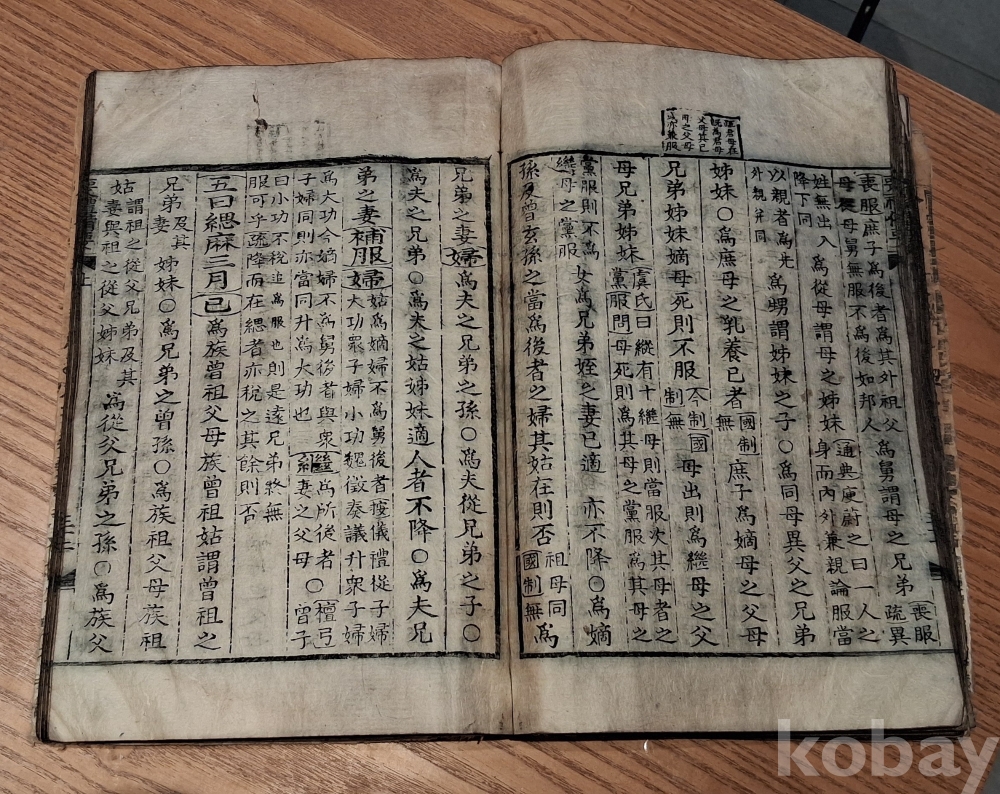 雖君母在
既為君母
父母其己
母之父母
亦兼服
喪服庶子為後者為其外祖父
母從母舅無服不為後如邦人
為舅謂母之兄弟
喪服
疏異
姓無出入
降下同
為從母謂母之姊妹
通典庾蔚之曰一人之
身而內外兼親論服當
以親者為先
外親并同
為甥謂姊妹之子○為同母異父之兄弟
姊妹○為庶母之乳養己者
國制
無
庶子為嫡母之父母
兄弟姊妹嫡母死則不服
今制國
制無
母出則為繼母之父
母兄弟姊妹
虞氏曰縱有十繼母則當服次其母者之
黨服問母死則為其母之黨服為其母之
黨服則不為
繼母之黨服
女為兄弟姪之妻已適亦不降○為嫡
孫及曾玄孫之當為後者之婦其姑在則否
祖母同
國制無
為
兄弟之妻婦為夫之兄弟之孫○為夫從兄弟之子○
為夫之兄弟○為夫之姑姊妹適人者不降○為夫兄
弟之妻補服婦
姑為嫡婦不為舅後者疫儀禮從子婦
大功眾子婦小功魏徵奏議升眾子婦
為大功今嫡婦不為舅後者與衆
子婦同則亦當同升為大功也
繼為所後者
妻之父母
○
檀弓
曾子
曰小功不稅追為服也則是遠兄弟終無
服可乎疏降而在緦者亦稅之其餘則否
五曰緦麻三月己為族曾祖父母族曾祖姑謂曾祖之
兄弟及其妻
姊妹○為兄弟之曾孫○為族祖父母族祖
姑謂祖之從父兄弟及其
妻與祖之從父姊妹
為從父兄弟之孫○為族父
kobay